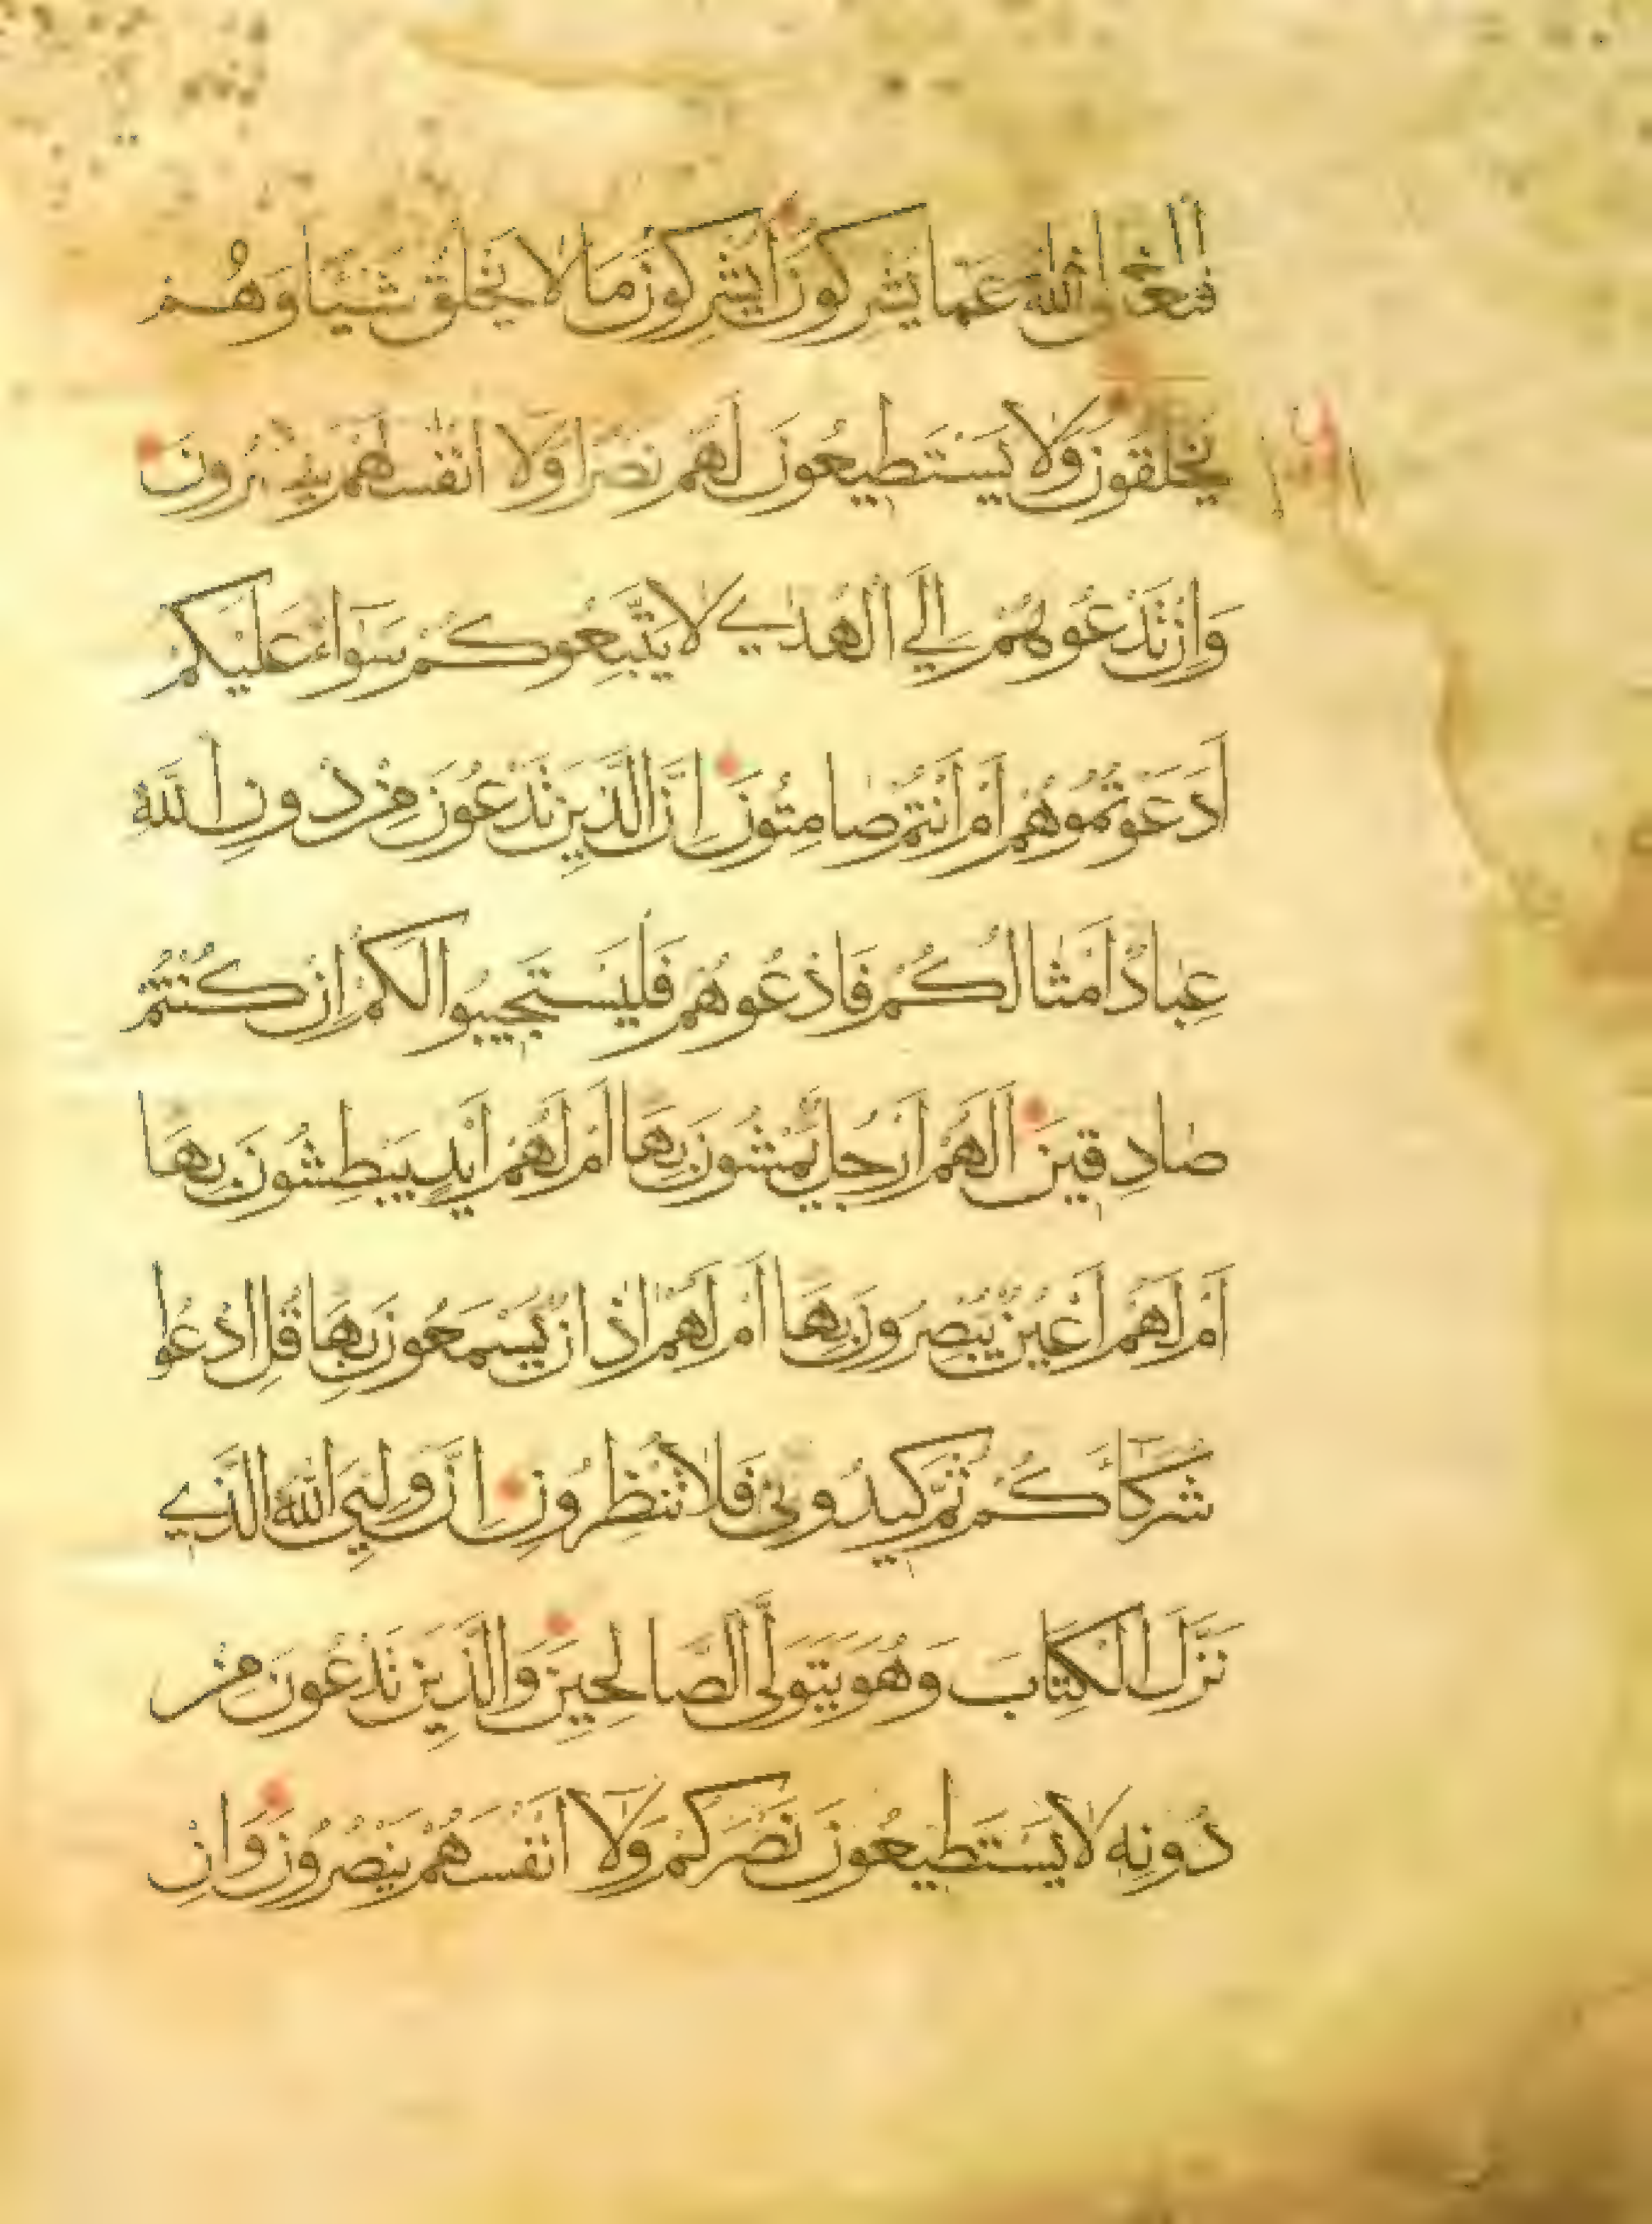 فتعالى الله عما يشركون ايشركون ما لا يخلق شيئا وهم
يخلقون ولا يستطيعون لهم نصرا ولا انفسهم ينصرون
وَاِنْ تَدْعُوهُمْ اِلَي الْهُدٰي لَا يَتَّبِعُوكُمْ سَوَاءٌ عَلَيْكُمْ
اَدَعَوْتُمُوهُمْ اَمْ اَنْتُمْ صَامِتُونَ اِنَّ الَّذِينَ تَدْعُونَ مِنْ دُونِ اللَّهِ
عِبَادٌ اَمْثَالُكُمْ فَادْعُوهُمْ فَلْيَسْتَجِيبُوا لَكُمْ اِنْ كُنْتُمْ
صَادِقِينَ اَلَهُمْ اَرْجُلٌ يَّمْشُونَ بِهَا اَمْ لَهُمْ اَيْدٍ يَبْطِشُونَ بِهَا
اَمْ لَهُمْ اَعْيُنٌ يُّبْصِرُونَ بِهَا اَمْ لَهُمْ اٰذَانٌ يَّسْمَعُونَ بِهَا قُلِ ادْعُوا
شُرَكَآءَكُمْ ثُمَّ كِيدُونِي فَلَا تُنْظِرُونِ اِنَّ وَلِيِّيَ اللَّهُ الَّذِي
نَزَّلَ الْكِتَابَ وَهُوَ يَتَوَلَّى الصَّالِحِينَ وَالَّذِينَ تَدْعُونَ مِنْ
دُونِهِ لَا يَسْتَطِيعُونَ نَصْرَكُمْ وَلَآ اَنْفُسَهُمْ يَنْصُرُونَ وَاِنْ